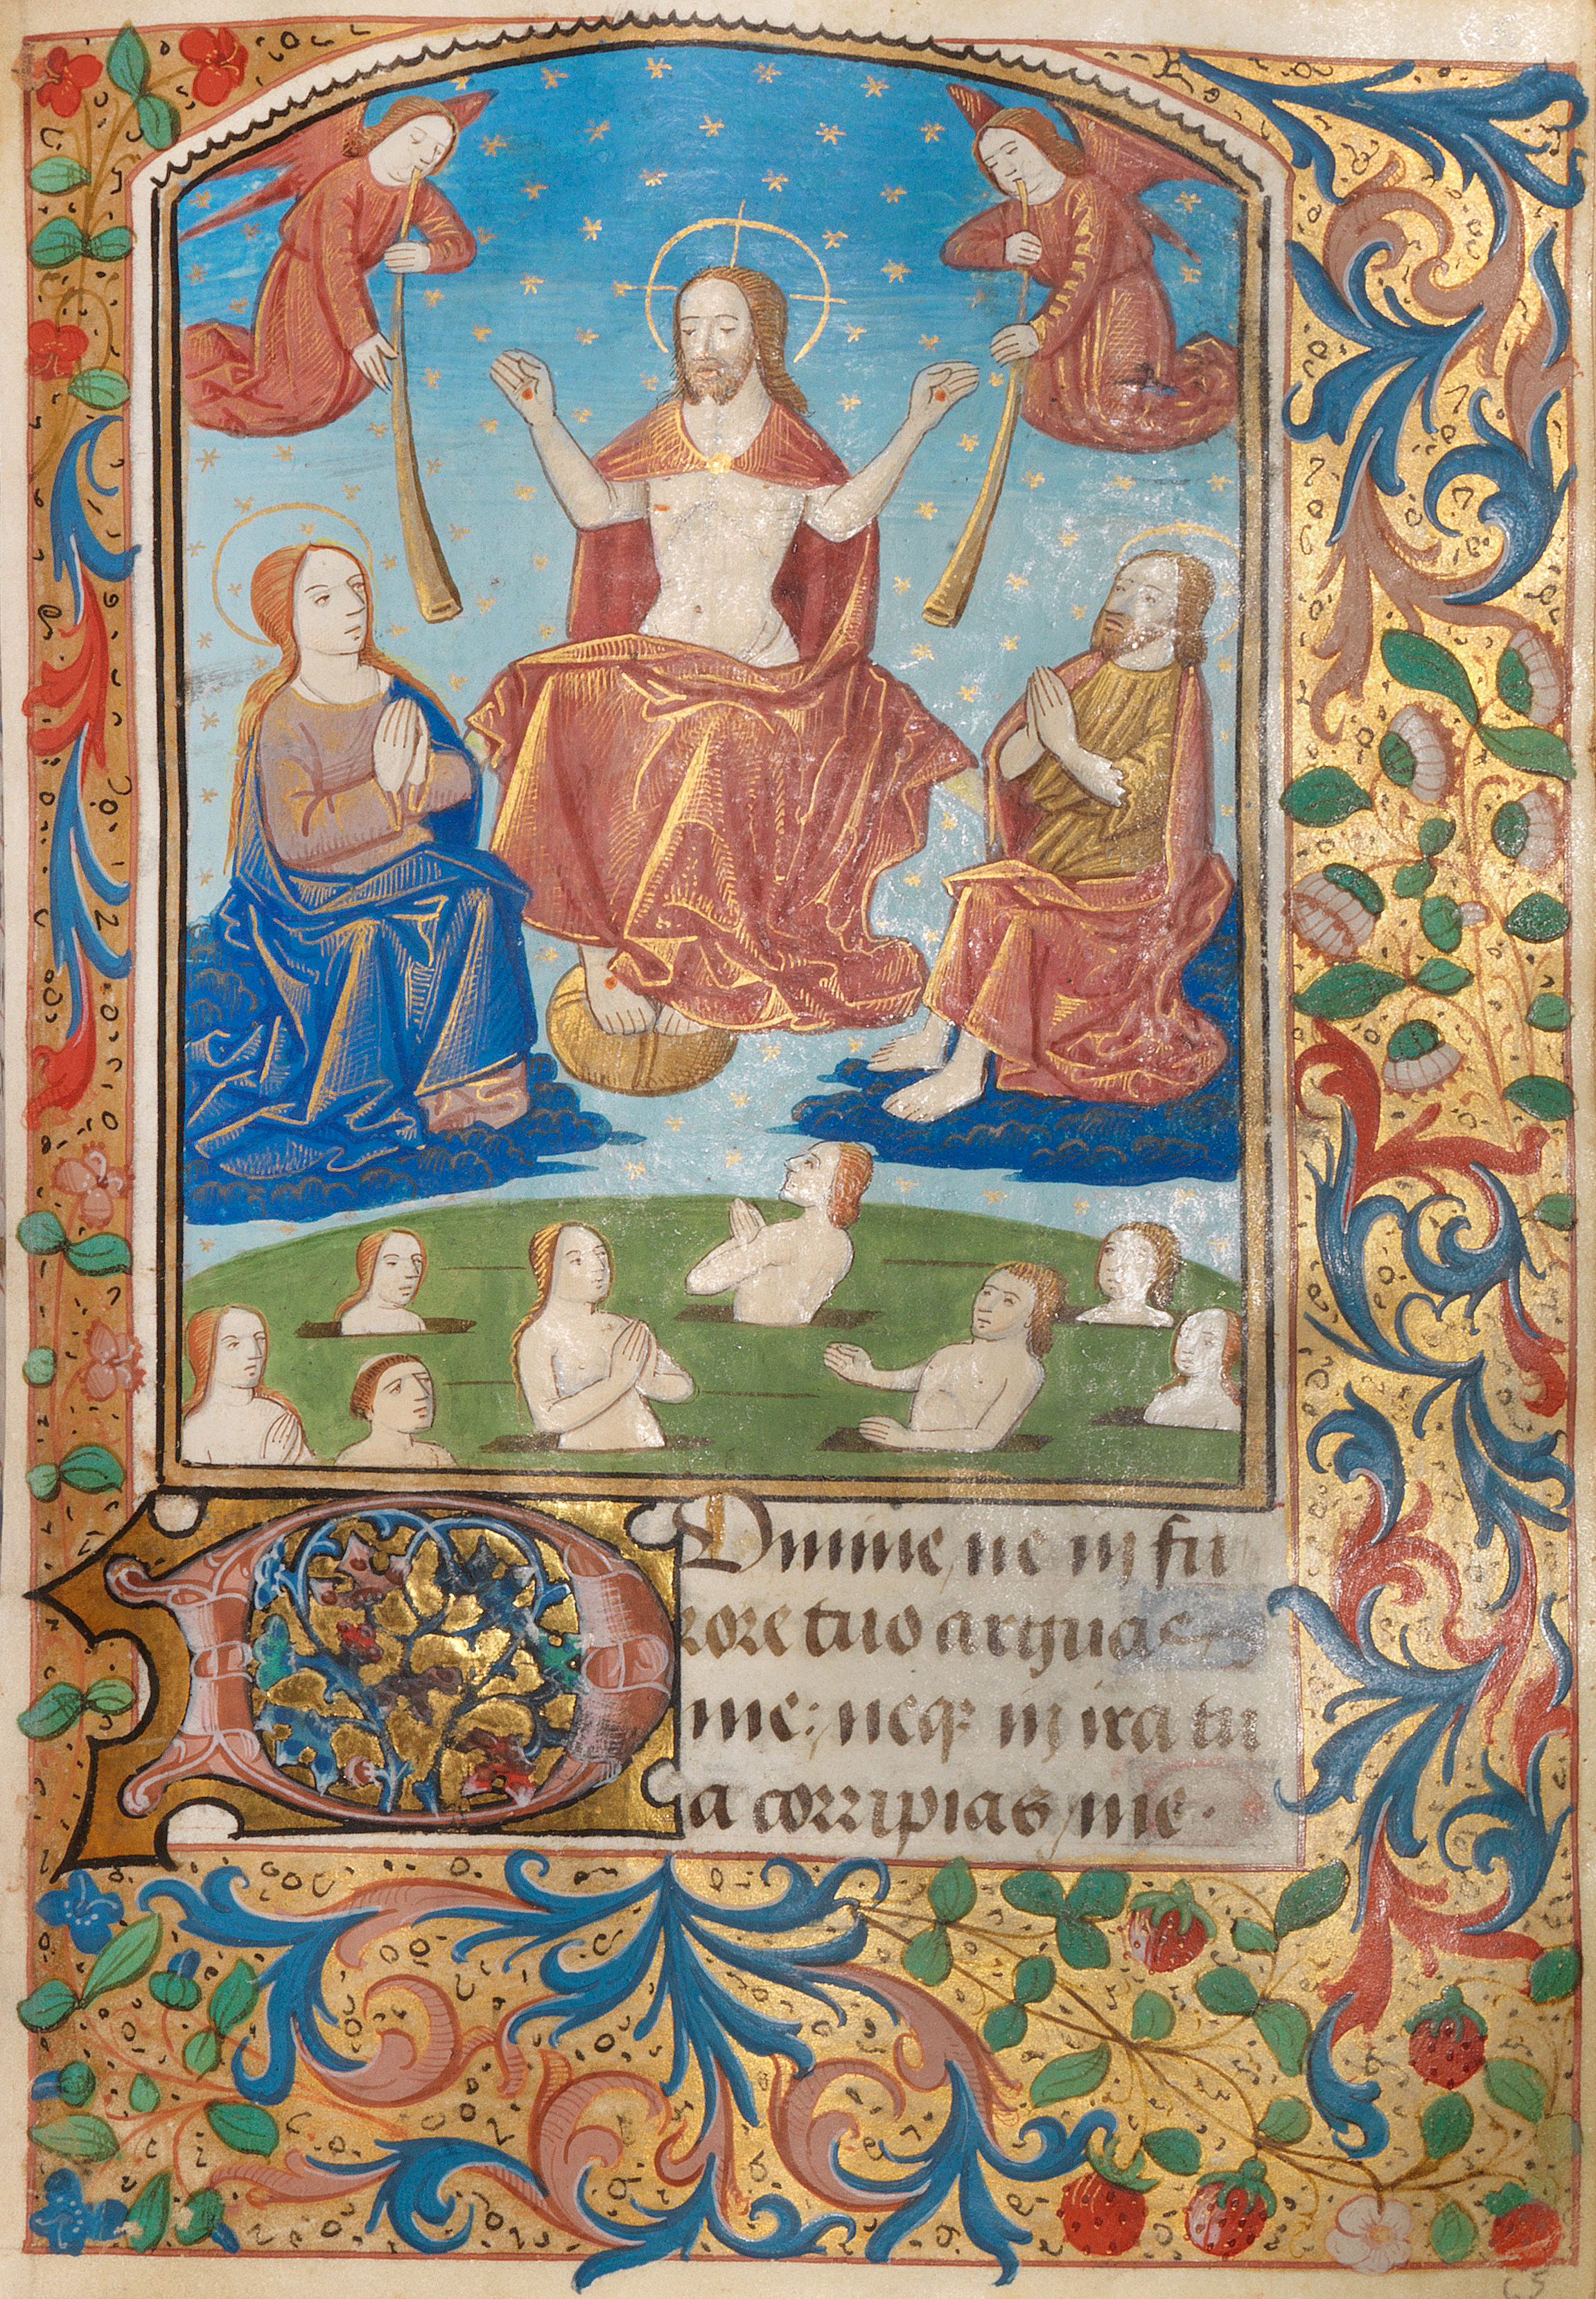 Domine ne in fu
rore tuo arguas
me: neqz in ira tu
a corripias me.
65